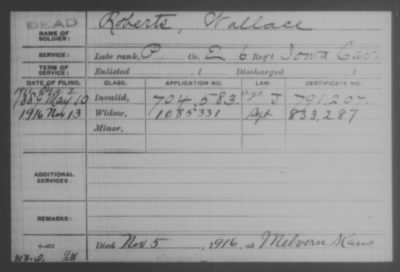 DEAD
NAME OF SOLDIER: Roberts, Wallace
SERVICE: Late rank, P. Co. E, 6 Reg't Iowa Cav.
TERM OF SERVICE: Enlisted , 1 Discharged , 1
DATE OF FILING. CLASS. APPLICATION NO. LAW. CERTIFICATE NO.
May 10 Invalid, 704,583 J 791,207.
1916 Nov 13 Widow, 1085331 833,287
Minor,
ADDITIONAL SERVICES:
REMARKS:
Died Nov. 5, 1916, at Melvern Kans